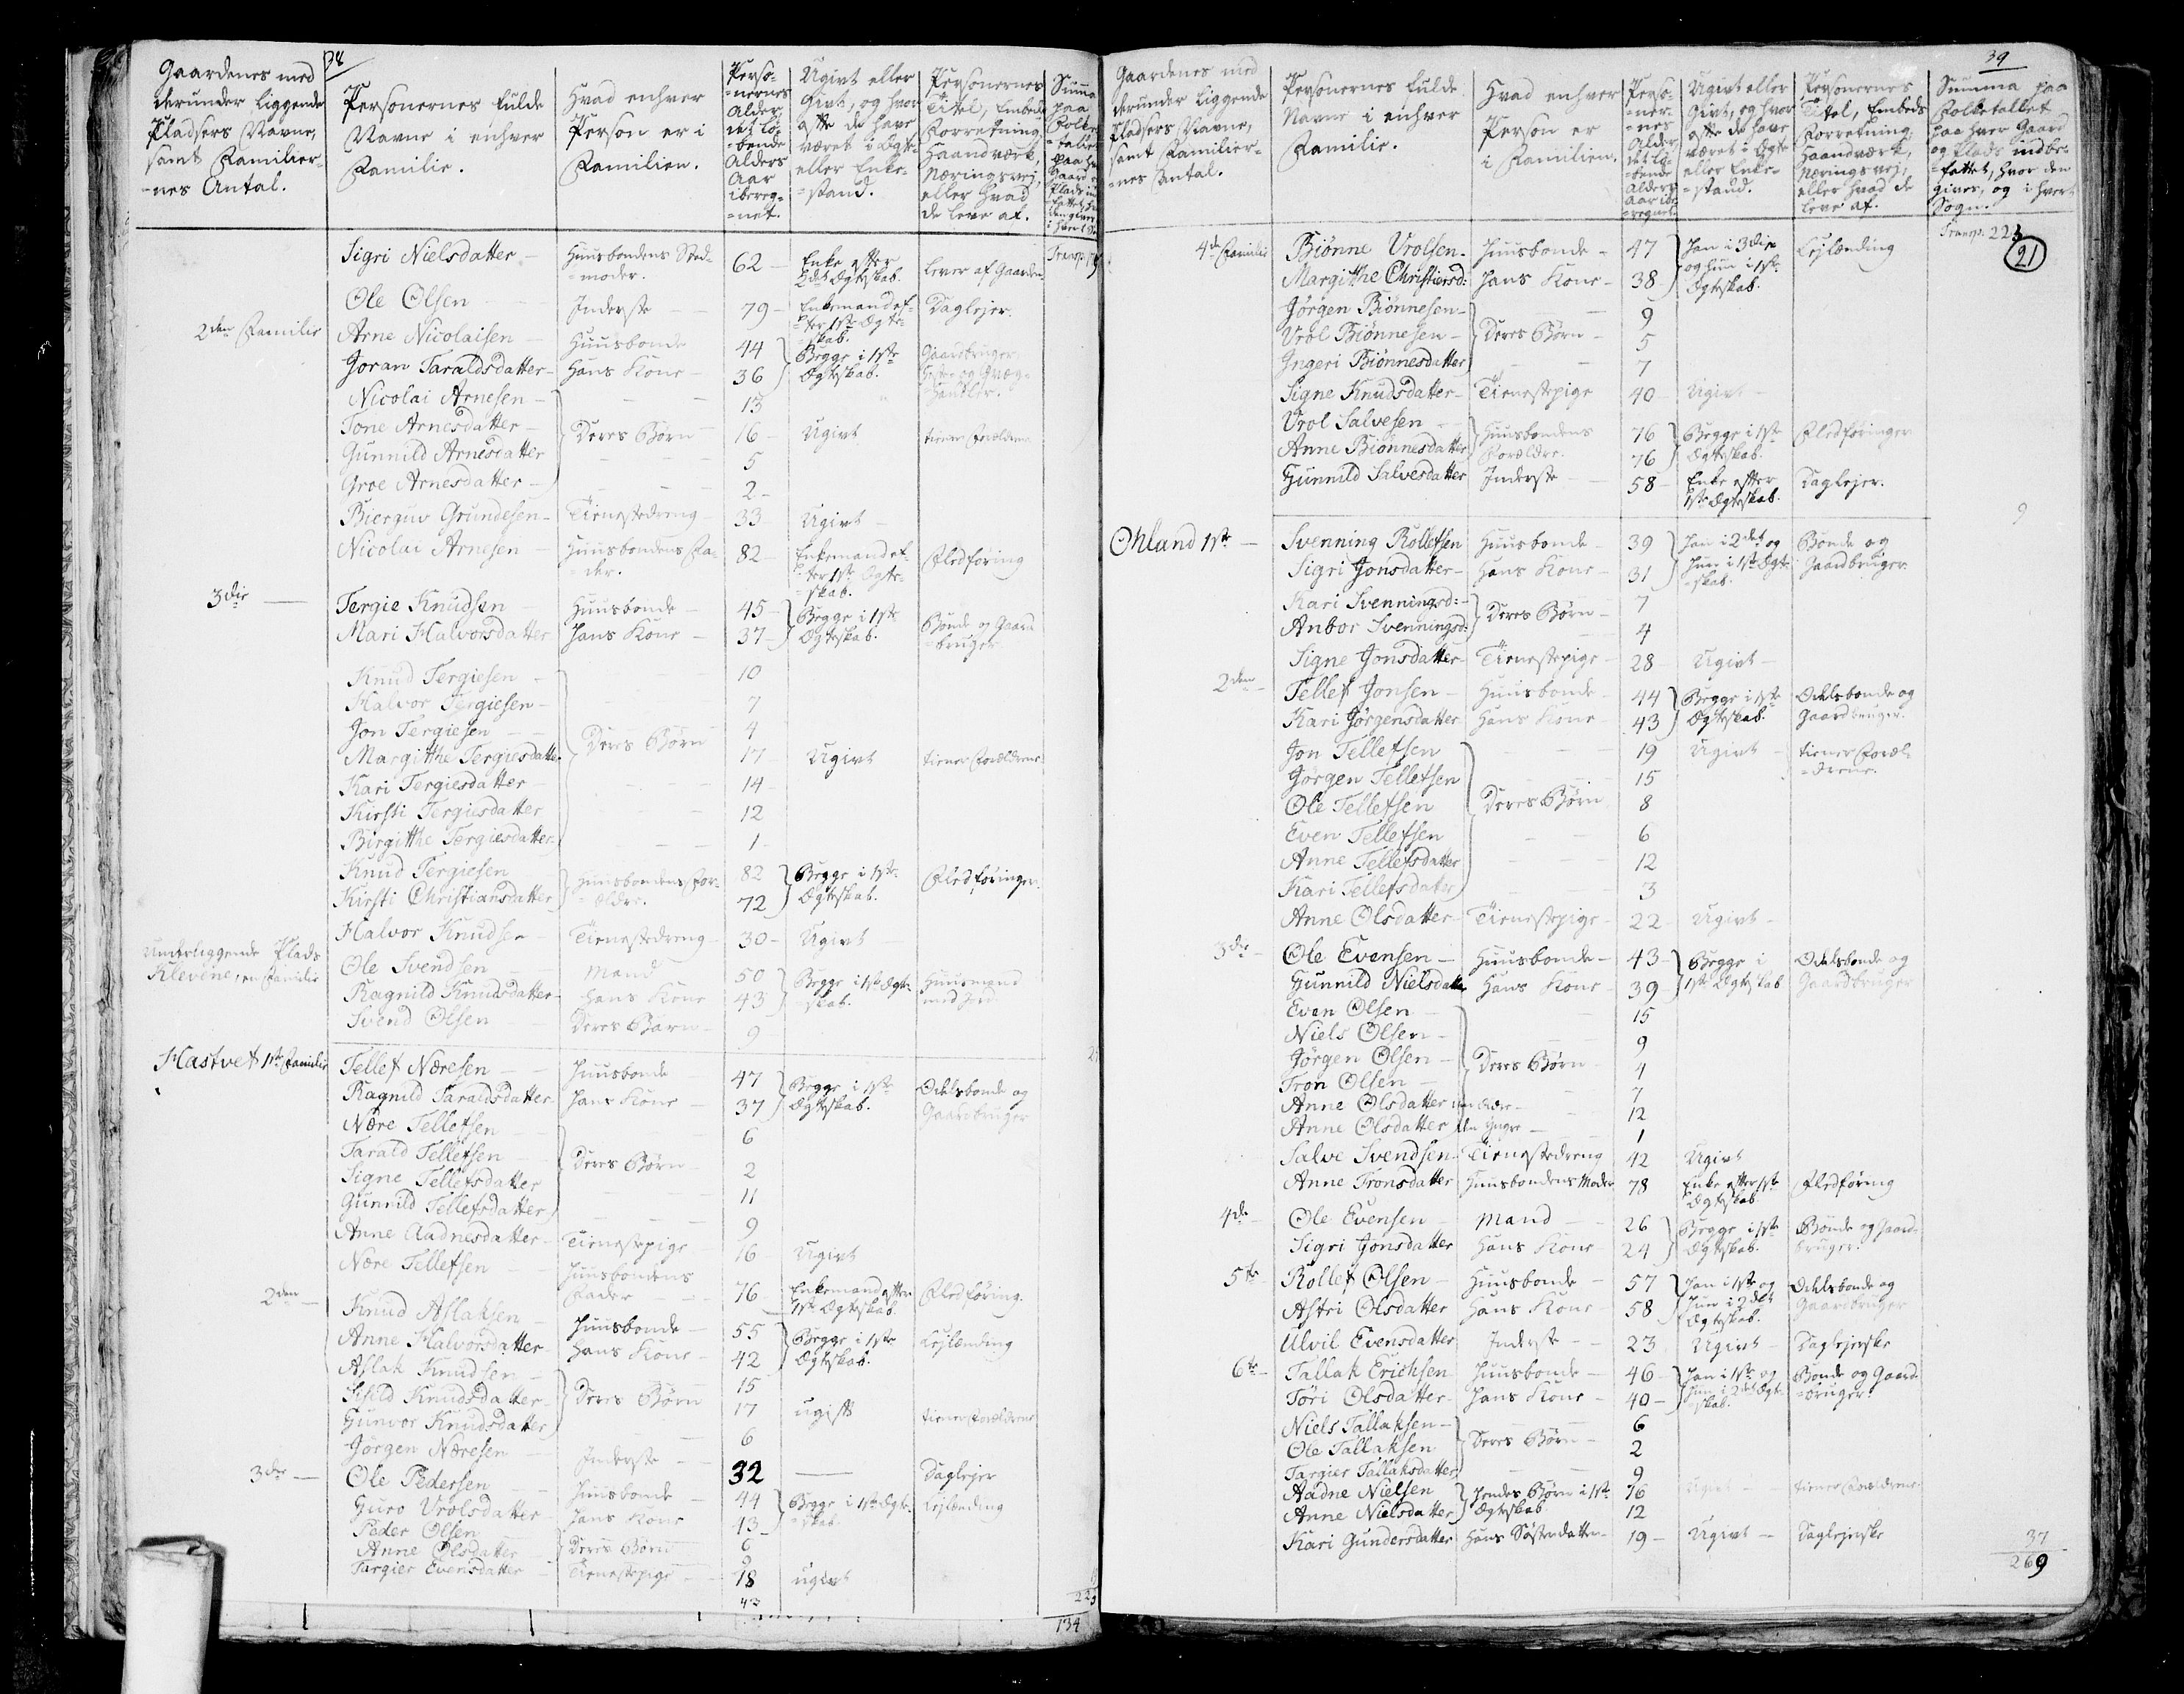 38
Gaardenes med derunder liggende Pladsers Navne, samt Familiernes Antal.
Personernes fulde Navne i enhver Familie.
Hvad enhver Person er i Familien.
Personernes Alder det løbende Alders Aar iberegnet.
Ugivt eller Givt, og hvor ofte de have været i Ægte- eller Enkestand.
Personernes Titel, Embeds Forretning, Haandværk, Næringsvej, eller hvad de leve af.
Sigri Nielsdatter Huusbondens Stedmoder. 62 Enke efter 2det Ægteskab. lever af Gaarden
Ole Olsen Inderste 79 Enkemand efter 1ste Ægteskab. Daglejer.
2den Familie Arne Nicolaisen Huusbonde 44 Begge i 1ste Gaardbruger
Joran Taraldsdatter Hans Kone 36 Ægteskab.
Nicolai Arnesen 13
Tone Arnesdatter Deres Børn 16 Ugivt tiener Forældrene
Gunnild Arnesdatter 5
Groe Arnesdatter 2
Bierguv Grundesen Tienestedreng 33 Ugivt
Nicolai Arnesen Huusbondens Fader. 82 Enkemand efter 1ste Ægteskab. Fledføring
3die Tergie Knudsen Huusbonde 45 Begge i 1ste Bonde og Gaardbruger
Mari Halvorsdatter Hans Kone 37 Ægteskab.
Knud Tergiesen 10
Halvor Tergiesen 7
Jon Tergiesen Deres Børn 4
Margitthe Tergiesdatter 17 Ugivt tiener Forældrene
Kari Tergiesdatter 14
Kirsti Tergiesdatter 12
Birgitthe Tergiesdatter 1
Knud Tergiesen Huusbondens Forældre. 82 Begge i 1ste Fledføringer.
Kirsti Christiansdatter 72 Ægteskab.
Halvor Knudsen Tienestedreng 30 Ugivt
Underliggende Plads
Klevene, en Familie Ole Svendsen Mand 50 Begge i 1ste Ægteskab. Huusmand med Jord
Ragnild Knudsdatter Hans Kone 43
Svend Olsen Deres Barn 9
Hastvet 1ste Familie Tellef Næresen Huusbonde 47 Begge i 1ste Odelsbonde og
Ragnild Taraldsdatter Hans Kone 37 Ægteskab. Gaardbruger
Nære Tellefsen 6
Tarald Tellefsen Deres Børn 2
Signe Tellefsdatter 11
Gunnild Tellefsdatter 9
Anne Aadnesdatter Tienestepige 16 Ugivt
Nære Tellefsen Huusbondens Fader 76 Enkemand efter 1ste Ægteskab. Fledføring.
2den Knud Aslaksen Huusbonde 55 Begge i 1ste Lejlænding
Anne Halvorsdatter Hans Kone 42 Ægteskab.
Aslak Knudsen 15
Sihld Knudsdatter Deres Børn 17 ugift tiener Forældrene
Gunvor Knudsdatter 6
Jørgen Næresen Inderste 32 Daglejer
3die Ole Pedersen Huusbonde 44 Begge i 1ste Ægteskab. Lejlænding
Guro Vrolsdatter Hans Kone 43
Peder Olsen Deres Børn 6
Anne Olsdatter 9
Targier Evensdatter Tienestepige 18 ugivt
43
134
39
Gaardenes med derunder liggende Pladsers Navne, samt Familiernes Antal.
Personernes fulde Navne i enhver Familie.
Hvad enhver Person er i Familien.
Personernes Alder det løbende Alders Aar iberegnet.
Ugivt eller Givt, og hvor ofte de have været i Ægte eller Enkestand.
Personernes Titel, Embeds Forretning, Haandværk, Næringsvej, eller hvad de leve af.
Summa paa Folketallet paa hver Gaard og Plads indbefattet, hvor den giver, og i hvert Sogn.
Transp. 223
21
4de Familie Biønne Vrolsen Huusbonde 47 Han i 3die Lejlænding
Margitthe Christiersd: Hans Kone 38 og hun i 1ste Ægteskab.
Jørgen Biønnesen 9
Vrol Biønnesen Deres Børn 5
Ingeri Biønnesdatter 7
Signe Knudsdatter Tienestepige 40 Ugivt
Vrol Salvesen Huusbondens 76 Begge i 1ste Fledføringer
Anne Biønnesdatter Forældre. 76 Ægteskab.
Gunnild Salvesdatter Inderste 58 Enke efter 1ste Ægteskab. Daglejer.
9
Ohland 1ste Svenning Rollefsen Huusbonde 39 Han i 2det og Bonde og
Sigri Jonsdatter Hans Kone 31 Hun i 1ste Ægteskab. Gaardbruger.
Kari Svenningsd: Deres Børn 7
Anbor Svenningsd: 4
Signe Jonsdatter Tienestepige 28 Ugivt
2den Tellef Jonsen Huusbonde 44 Begge i 1ste Odelsbonde og
Kari Jørgensdatter Hans Kone 43 Ægteskab. Gaardbruger.
Jon Tellefsen 19 Ugivt tiener Forældrene.
Jørgen Tellefsen 15
Ole Tellefsen Deres Børn 8
Even Tellefsen 6
Anne Tellefsdatter 12
Kari Tellefsdatter 3
Anne Olsdatter Tienestepige 22 Ugivt
3die Ole Evensen Huusbonde 43 Begge i Odelsbonde og
Gunnild Nielsdatter Hans Kone 39 1ste Ægteskab Gaardbruger
Even Olsen 15
Niels Olsen 9
Jørgen Olsen Deres Børn 4
Tron Olsen 7
Anne Olsdatter den ældre 12
Anne Olsdatter den Yngre 1
Salve Svendsen Tienestedreng 42 Ugivt
Anne Tronsdatter Huusbondens Moder 78 Enke efter 1ste Ægteskab Fledføring
4de Ole Evensen Mand 26 Begge i 1ste Bonde og Gaardbruger.
Sigri Jonsdatter Hans Kone 24 Ægteskab.
5te Rollef Olsen Huusbonde 57 Han i 1ste og Odelsbonde og
Astri Olsdatter Hans Kone 58 Hun i 2det Ægteskab. Gaardbruger
Ulvil Evensdatter Inderste 23 Ugivt Daglejerske
6te Tallak Erichsen Huusbonde 46 Han i 1ste og Bonde og Gaardbruger.
Tori Olsdatter Hans Kone 40 Hun i 2det Ægteskab.
Niels Tallaksen 6
Ole Tallaksen Deres Børn 2
Targier Tallaksdatter 9
Aadne Nielsen Hendes Børn i 1ste 16 Ugivt tiener Forældrene.
Anne Nielsdatter Ægteskab 12
Kari Gundersdatter Hans Søsterdatter 19 Ugivt Daglejerske
37
269